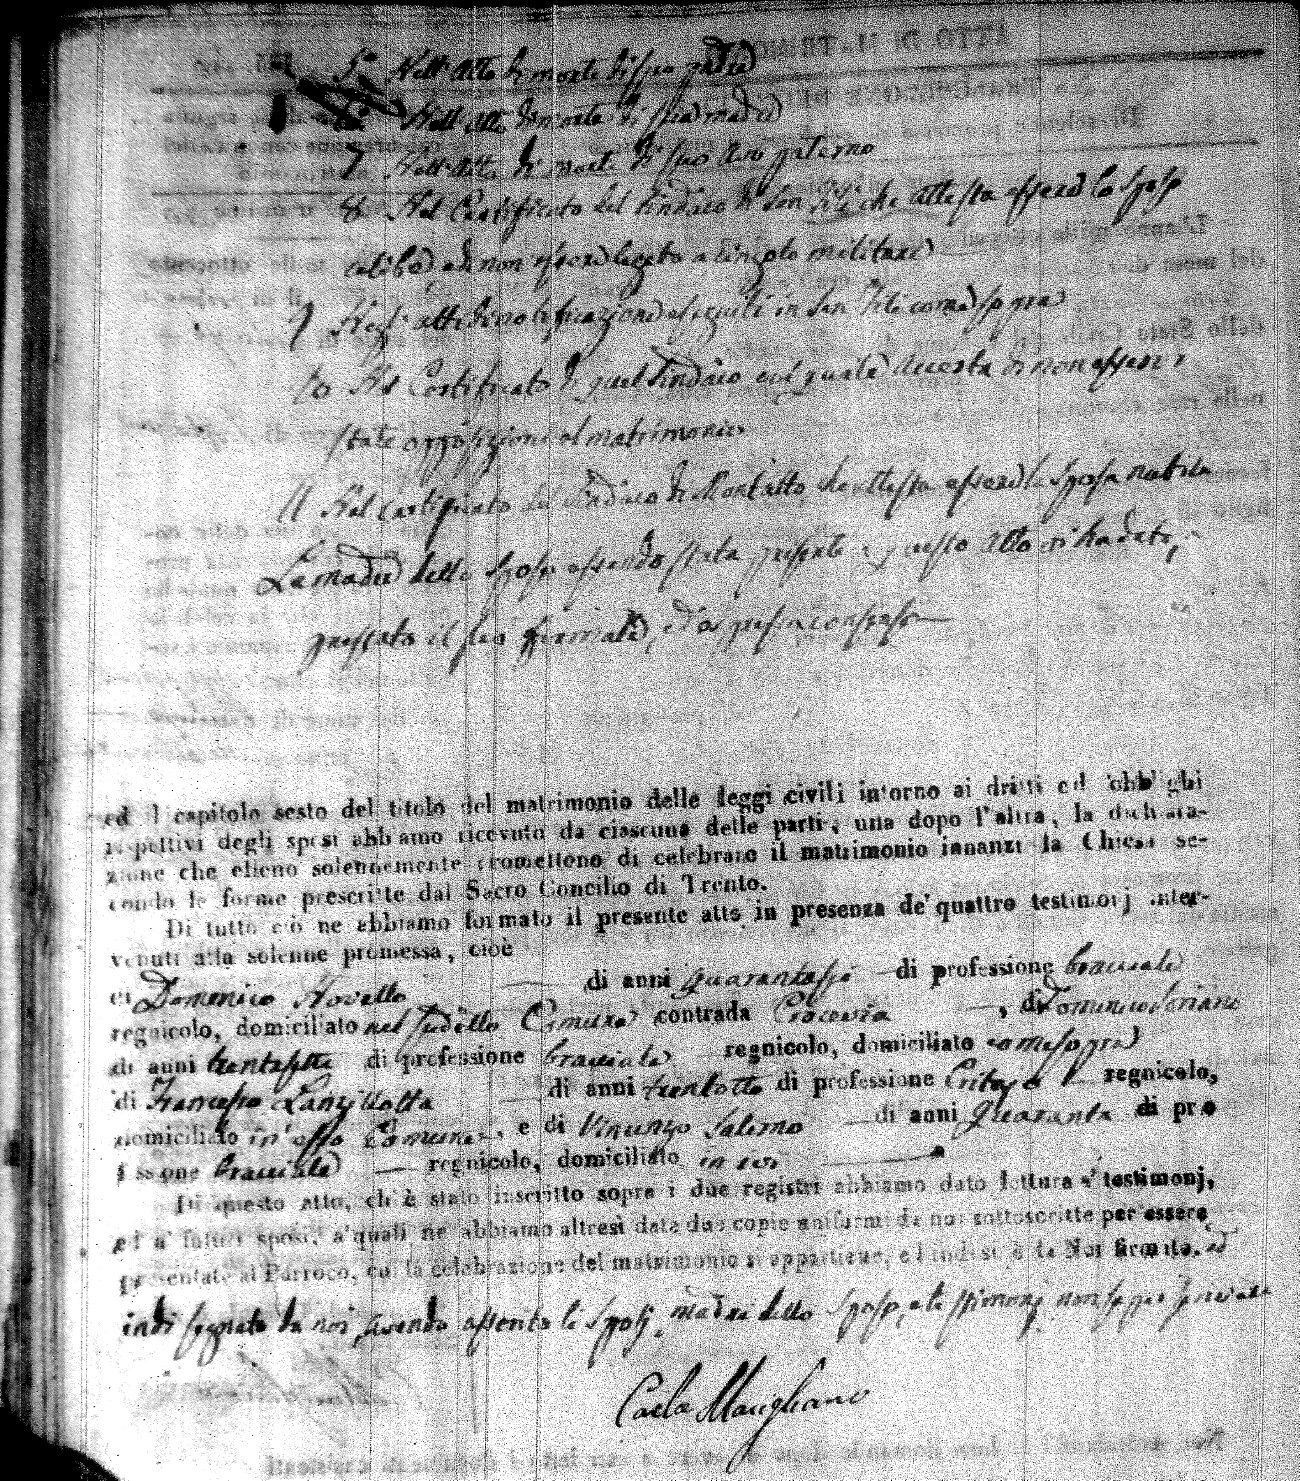 5° Nell'atto di morte di suo padre
6° Nell'atto di morte di sua madre
7 Nell'atto di morte di suo avo paterno
8 Nel Certificato del Sindaco di San che attesta essere lo sposo
celibe, e di non essere legato a vincolo militare
9 Negl'atti di notificazione eseguiti in San come sopra
10 Nel Certificato di quel Sindaco col quale accerta di non esservi
state opposizioni al matrimonio
11 Nel Certificato del Sindaco di Montalto che attesta essere la sposa nubile
La madre dello sposo essendo stata presente a questo atto vi ha dato,
prestato il suo formale, ed espresso consenso
ed il capitolo sesto del titolo del matrimonio delle leggi civili intorno ai dritti ed obblighi
rispettivi degli sposi abbiamo ricevuto da ciascuna delle parti, una dopo l'altra, la dichiara-
zione che elleno solennemente promettono di celebrare il matrimonio innanzi la Chiesa se-
condo le forme prescritte dal Sacro Concilio di Trento.
Di tutto ciò ne abbiamo formato il presente atto in presenza de' quattro testimonj inter-
venuti alla solenne promessa, cioè
di Domenico Novello di anni quarantasei di professione bracciale
regnicolo, domiciliato nel Comune contrada di Domenico
di anni trentasette di professione bracciale regnicolo, domiciliato come sopra
di Francesco Langillotta di anni trentotto di professione regnicolo,
domiciliato in esso Comune, e di Vincenzo Salerno di anni Quaranta di pro
fessione bracciale regnicolo, domiciliato in ivi
Di questo atto, ch'è stato inscritto sopra i due registri abbiamo dato lettura a' testimonj,
ed a' futuri sposi, a' quali ne abbiamo altresì data due copie uniformi da noi sottoscritte per essere
presentate al Parroco, cui la celebrazione del matrimonio si appartiene, e l'indi si è da Noi firmato. ed
indi segnato da noi, avendo asserito li sposi, madre dello sposo, e testimonj non saper scrivere
Carlo Marigliano